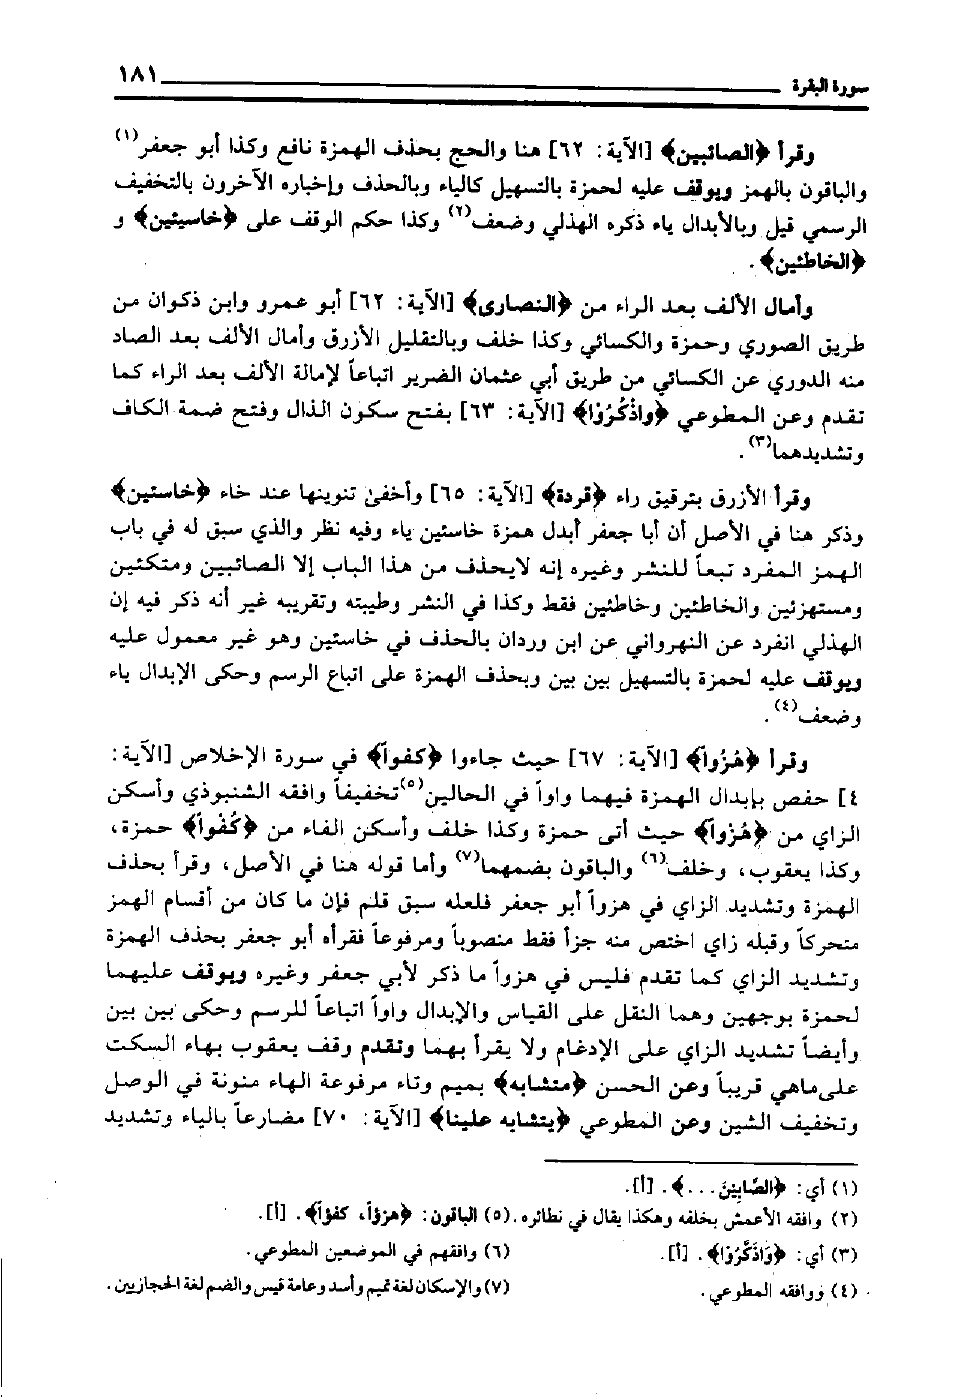 سورة البقرة ١٨١
وقرأ ﴿الصائبين﴾ [الآية: ٦٢] هنا والحج بحذف الهمزة نافع وكذا أبو جعفر(١)
والباقون بالهمز ويوقف عليه لحمزة بالتسهيل كالياء وبالحذف وإخباره الآخرون بالتخفيف
الرسمي قيل وبالأبدال ياء ذكره الهذلي وضعف(٢) وكذا حكم الوقف على ﴿خاسيئين﴾ و
﴿الخاطئين﴾.
وأمال الألف بعد الراء من ﴿النصارى﴾ [الآية: ٦٢] أبو عمرو وابن ذكوان من
طريق الصوري وحمزة والكسائي وكذا خلف وبالتقليل الأزرق وأمال الألف بعد الصاد
منه الدوري عن الكسائي من طريق أبي عثمان الضرير اتباعاً لإمالة الألف بعد الراء كما
تقدم وعن المطوعي ﴿واذْكُرُوْا﴾ [الآية: ٦٣] بفتح سكون الذال وفتح ضمة الكاف
وتشديدهما(٣).
وقرأ الأزرق بترقيق راء ﴿قردة﴾ [الآية: ٦٥] وأخفىٰ تنوينها عند خاء ﴿خاستين﴾
وذكر هنا في الأصل أن أبا جعفر أبدل همزة خاسئين ياء وفيه نظر والذي سبق له في باب
الهمز المفرد تبعاً للنشر وغيره إنه لايحذف من هذا الباب إلا الصائبين ومتكئين
ومستهزئين والخاطئين وخاطئين فقط وكذا في النشر وطيبته وتقريبه غير أنه ذكر فيه إن
الهذلي انفرد عن النهرواني عن ابن وردان بالحذف في خاسئين وهو غير معمول عليه
ويوقف عليه لحمزة بالتسهيل بين بين وبحذف الهمزة على اتباع الرسم وحكى الإبدال ياء
وضعف(٤).
وقرأ ﴿هُزُواً﴾ [الآية: ٦٧] حيث جاءوا ﴿كفواً﴾ في سورة الإخلاص [الآية:
٤] حفص بإبدال الهمزة فيهما واواً في الحالين(٥)تخفيفاً وافقه الشنبوذي وأسكن
الزاي من ﴿هُزُواً﴾ حيث أتى حمزة وكذا خلف وأسكن الفاء من ﴿كُفُواً﴾ حمزة،
وكذا يعقوب، وخلف(٦) والباقون بضمهما(٧) وأما قوله هنا في الأصل، وقرأ بحذف
الهمزة وتشديد الزاي في هزواً أبو جعفر فلعله سبق قلم فإن ما كان من أقسام الهمز
متحركاً وقبله زاي اختص منه جزأ فقط منصوباً ومرفوعاً فقرأه أبو جعفر بحذف الهمزة
وتشديد الزاي كما تقدم فليس في هزواً ما ذكر لأبي جعفر وغيره ويوقف عليهما
لحمزة بوجهين وهما النقل على القياس والإبدال واواً اتباعاً للرسم وحكى بين بين
وأيضاً تشديد الزاي على الإدغام ولا يقرأ بهما وتقدم وقف يعقوب بهاء السكت
على ماهي قريباً وعن الحسن ﴿متشابه﴾ بميم وتاء مرفوعة الهاء منونة في الوصل
وتخفيف الشين وعن المطوعي ﴿يتشابه علينا﴾ [الآية: ٧٠] مضارعاً بالياء وتشديد
(١) أي: ﴿الصَّابِيْنَ...﴾. [أ].
(٢) وافقه الأعمش بخلفه وهكذا يقال في نظائره.
(٣) أي: ﴿وَاذَّكَّرُوْا﴾. [أ].
(٤) ووافقه المطوعي.
(٥) الباقون: ﴿هزؤاً، كفؤاً﴾. [أ].
(٦) وافقهم في الموضعين المطوعي.
(٧) والإسكان لغة تميم وأسد وعامة قيس والضم لغة الحجازيين.